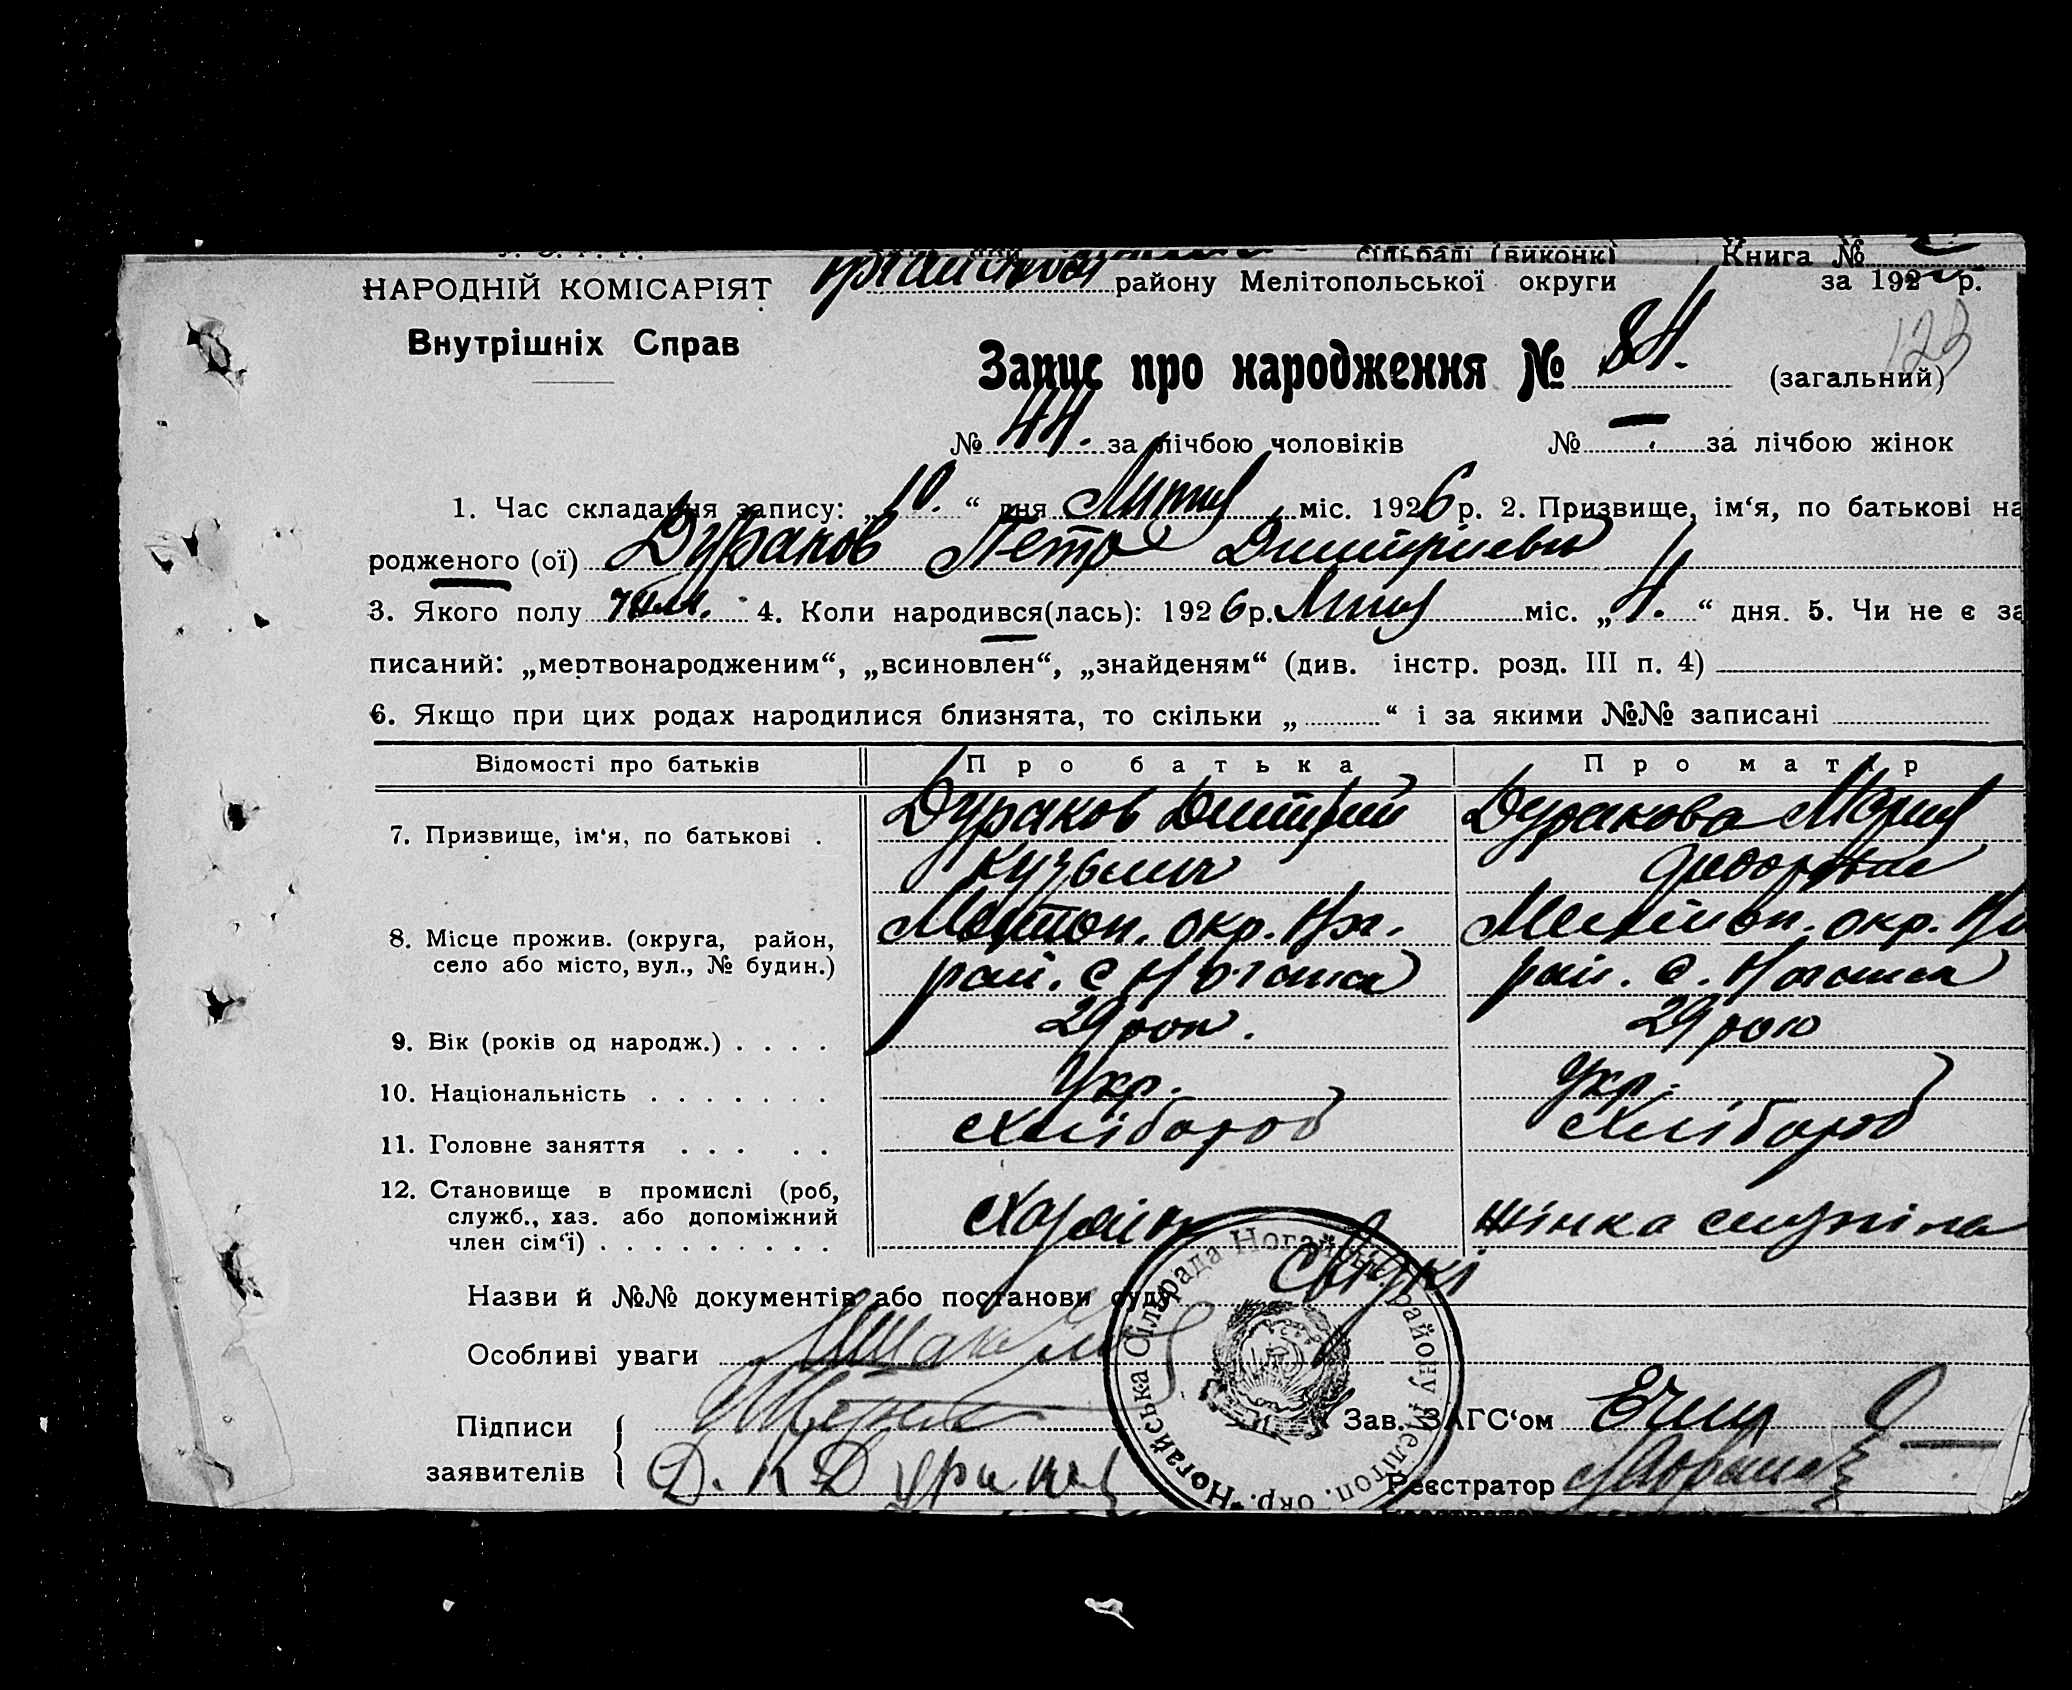 сільраді (виконк) Книга №
НАРОДНІЙ КОМІСАРІЯТ району Мелітопольської округи за 192 р.
Внутрішніх Справ
Запис про народження № 84. (загальний)
123
№ 44. за лічбою чоловіків № — за лічбою жінок
1. Час складання запису: „10.“ дня Лютня міс. 1926 р. 2. Призвище, ім‘я, по батькові на
родженого (ої) Дураков Петро Дмитриевич
3. Якого полу чол. 4. Коли народився(лась): 1926 р. Лютня міс. „4.“ дня. 5. Чи не є за
писаний: „мертвонародженим“, „всиновлен“, „знайденям“ (див. інстр. розд. III п. 4)
6. Якщо при цих родах народилися близнята, то скільки „ “ і за якими №№ записані
Відомості про батьків Про батька Про матір
7. Призвище, ім‘я, по батькові . Дураков Дмитрий Дуракова Мария
Кузьмич Федоровна
8. Місце прожив. (округа, район, Мелитоп. окр. Ног. Мелітоп. окр. Но
село або місто, вул., № будин.) рай. с Ногайск рай. с. Ногайск
9. Вік (років од народж.) . . . . 29 рок. 29 рок
10. Національність . . . . . . . Укр. Укр.
11. Головне заняття . . . . . Хлібороб Хлібороб
12. Становище в промислі (роб,
служб., хаз. або допоміжний Хазяін жінка
член сім‘ї) . . . . . . . . .
Назви й №№ документів або постанови суду
Особливі уваги
Підписи Зав. ЗАГС‘ом
заявителів Д. К Дураков Реєстратор
Ногайська Сільрада Ногайськ. району Меліtoп. окр.